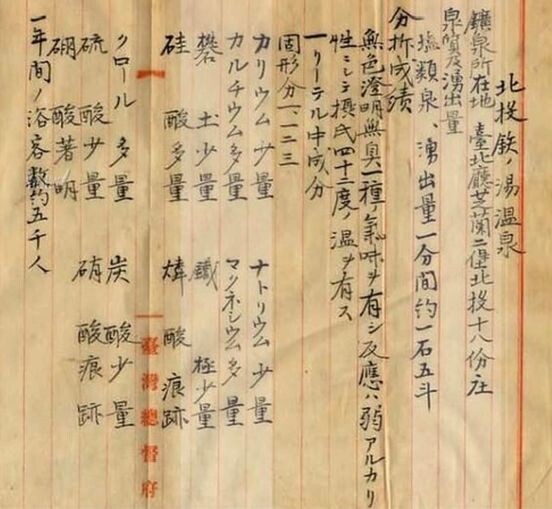 北投鉄ノ湯温泉
鑛泉所在地　臺北廳芝蘭二堡北投十八份庄
泉質及湧出量
塩類泉、湧出量一分間約一石五斗
分析成績
無色澄明無臭一種ノ氣味ヲ有シ反應ハ弱アルカリ
性ニシテ摂氏四十三度ノ温ヲ有ス
一リーテル中成分
固形分一、一二三
カリウム少量　ナトリウム少量
カルチウム多量　マクネシウム多量
礬土少量　鐵極少量
硅酸多量　燐酸痕跡
クロール多量　炭酸少量
硫酸少量　硝酸痕跡
硼酸著明
一年間ノ浴客数約五千人
臺灣總督府